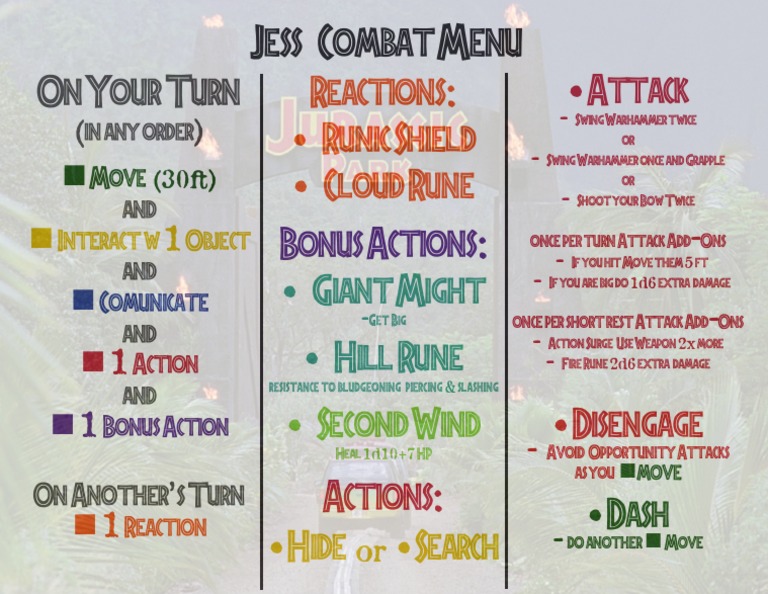 Jess Combat Menu
On Your Turn
(in any order)
Move (30ft)
and
Interact w 1 Object
and
Comunicate
and
1 Action
and
1 Bonus Action
On Another's Turn
1 Reaction
Jurassic
Park
Reactions:
• Runic Shield
• Cloud Rune
Bonus Actions:
• Giant Might
-Get Big
• Hill Rune
resistance to bludgeoning piercing & slashing
• Second Wind
Heal 1d10+7 HP
Actions:
• Hide or • Search
• Attack
- Swing Warhammer twice
or
- Swing Warhammer once and Grapple
or
- Shoot your Bow Twice
once per turn Attack Add-Ons
- If you hit Move them 5 ft
- If you are big do 1d6 extra damage
once per short rest Attack Add-Ons
- Action Surge Use Weapon 2x more
- Fire Rune 2d6 extra damage
• Disengage
- Avoid Opportunity Attacks
as you Move
• Dash
- do another Move